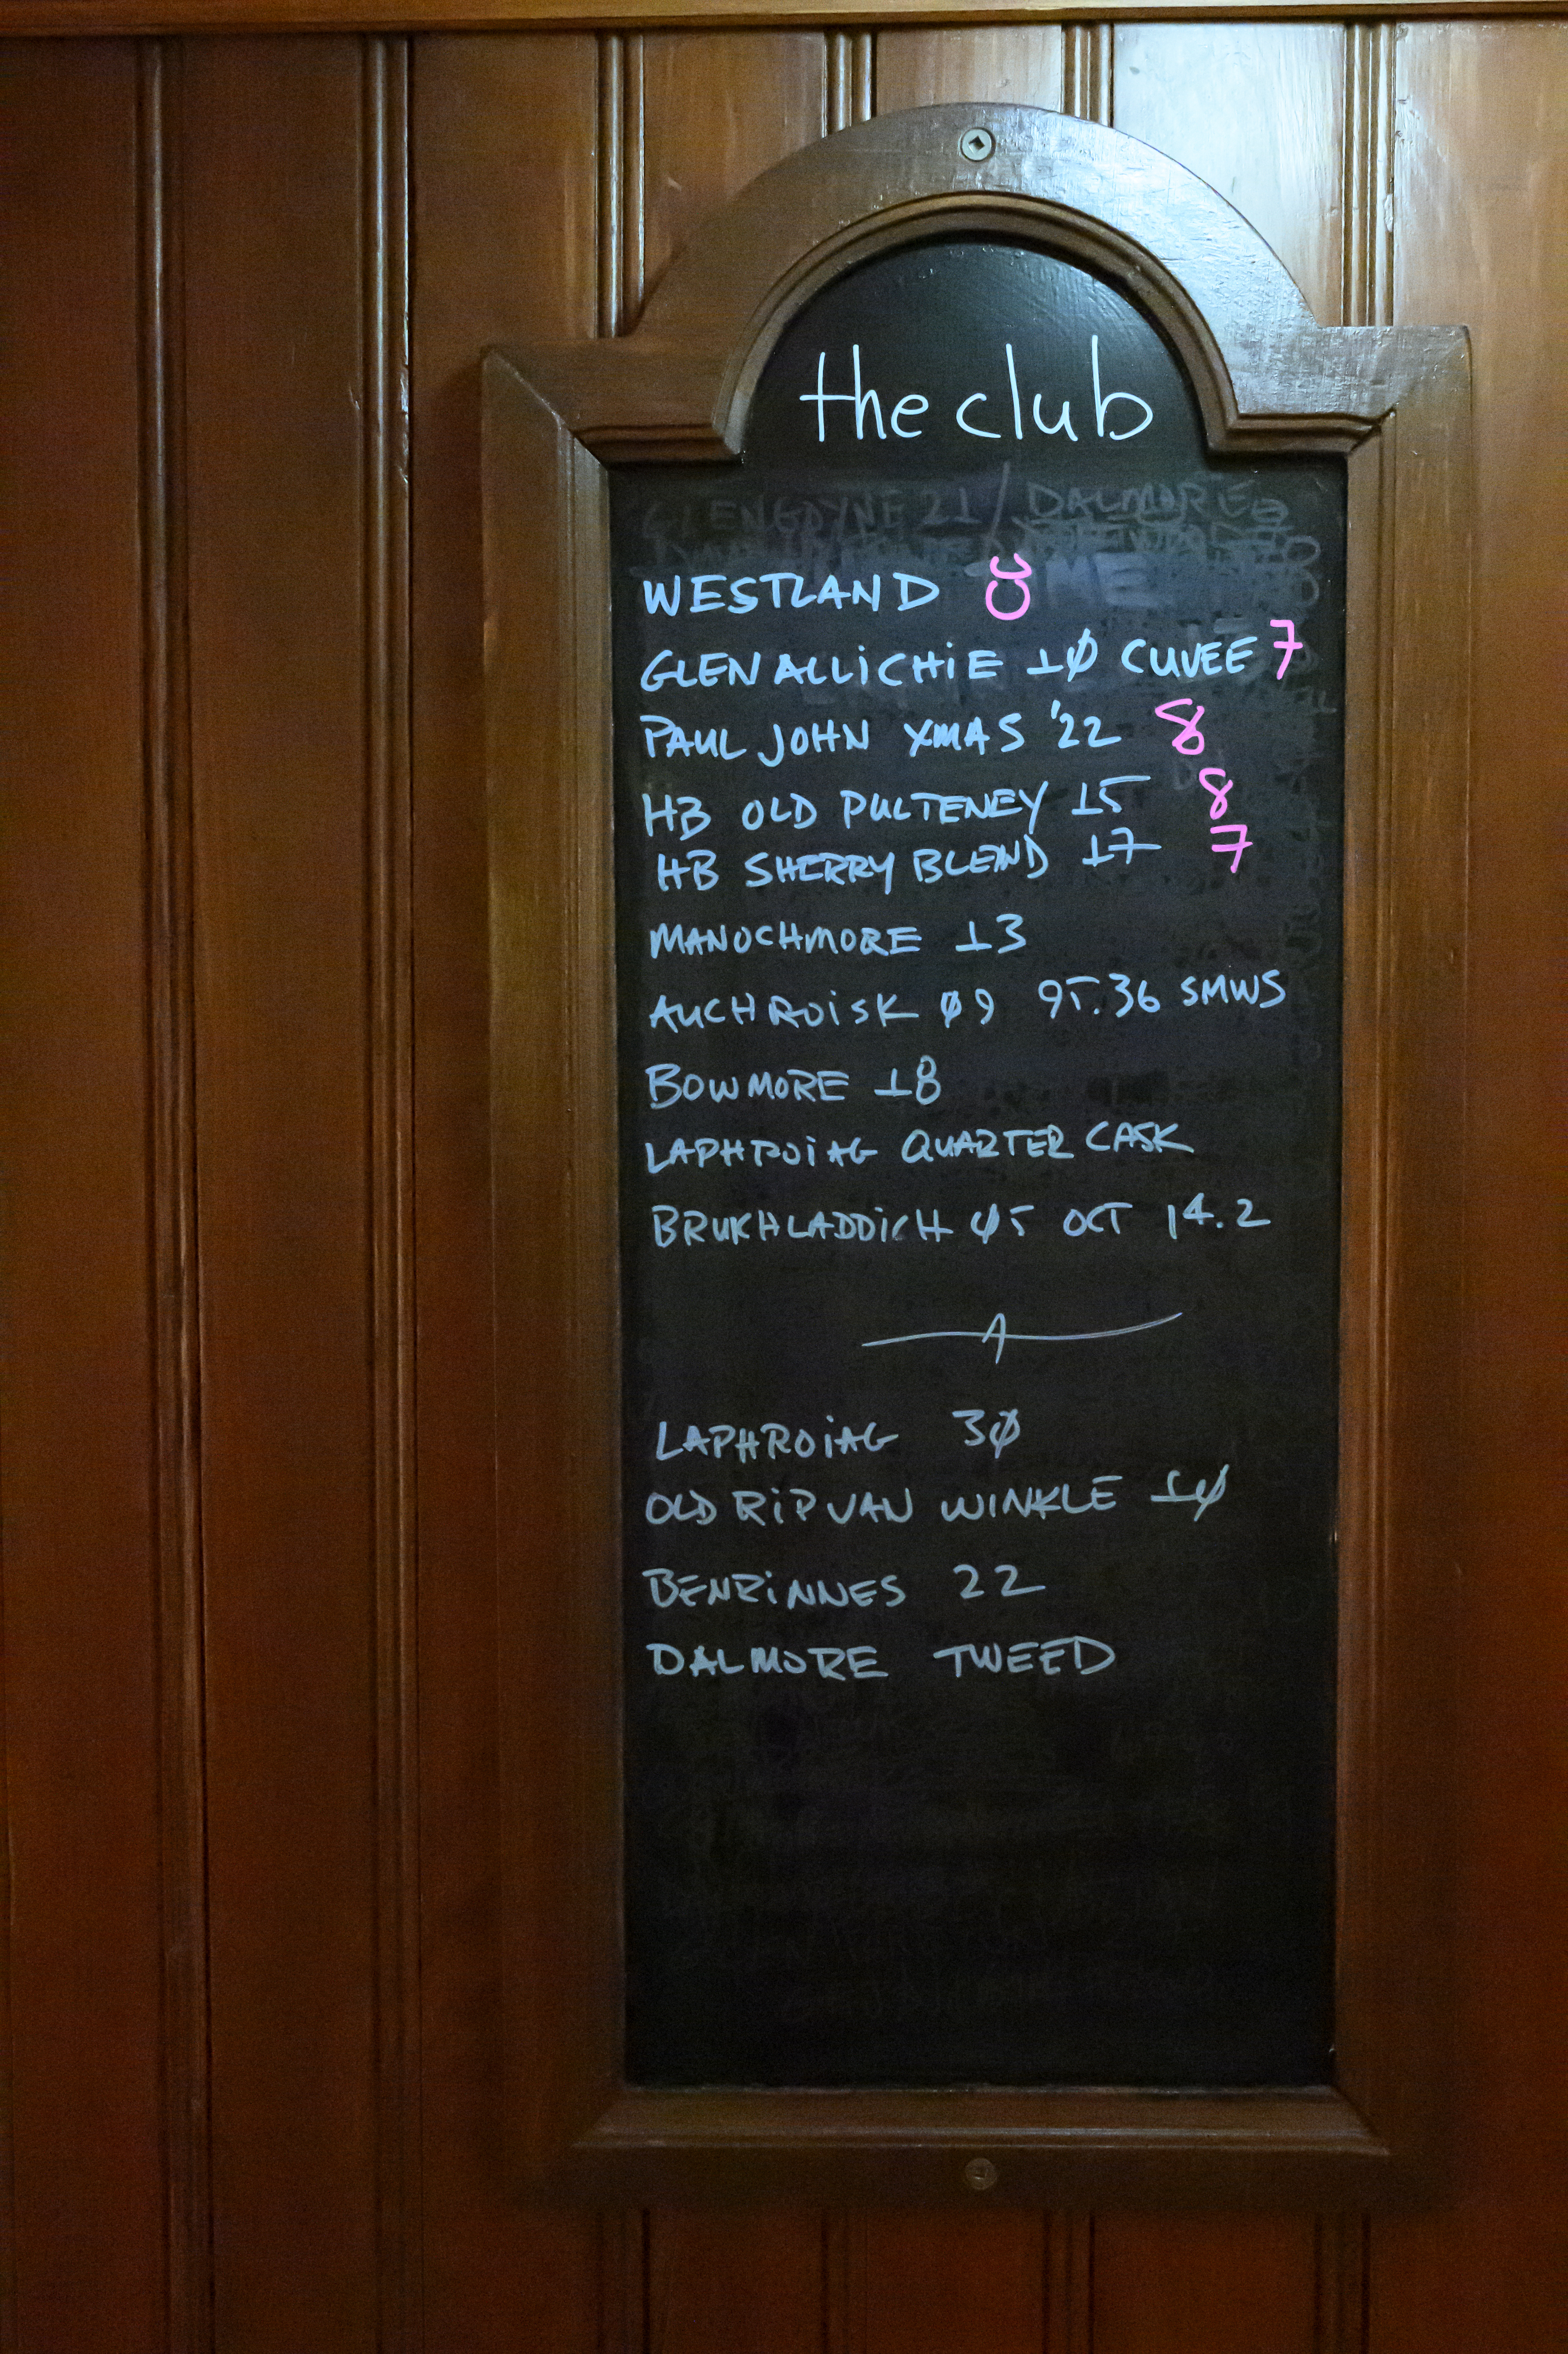 the club
GLENGOYNE 21 / DALMORE
WESTLAND 8
GLENALLICHIE 10 CUVEE 7
PAUL JOHN XMAS '22 8
HB OLD PULTENEY 15 8
HB SHERRY BLEND 17 7
MANOCHMORE 13
AUCHROISK 09 95.36 SMWS
BOWMORE 18
LAPHROIAG QUARTER CASK
BRUKHLADDICH 05 OCT 14.2
LAPHROIAG 30
OLD RIP VAN WINKLE 10
BENRINNES 22
DALMORE TWEED